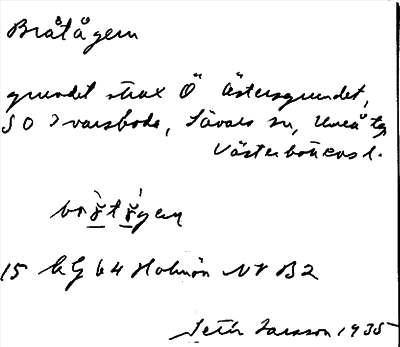 Bråtågern
grundet strax Ö Ästersgrundet,
SO Ivarsboda, Sävars sn, Umeå tg,
Västerbottens l.
15 kg 64 Holmön NV B2
Seth Larsson 1935